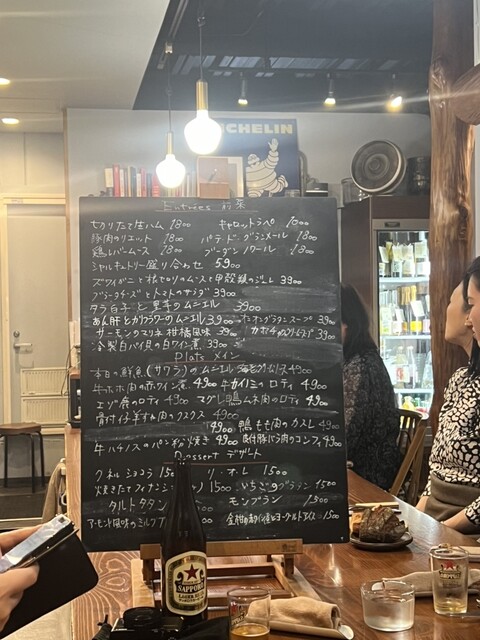 MICHELIN
Entrées 前菜
切りたて生ハム 1800 キャロットラペ 1000
豚肉のリエット 1800 パテ・ド・グランメール 1800
鶏レバームース 1800 ブーダンノワール 1800
シャルキュトリー盛り合わせ 5900
ズワイガニと根セロリのムースと甲殻類のジュレ 3900
ブラータチーズとトマトのサラダ 3900
タラ白子と里芋のムニエル 3900
あん肝とカリフラワーのムニエル 3900 オニオングラタンスープ 3900
サーモンのマリネ 柑橘風味 3900
冷製白バイ貝の白ワイン煮 1800
Plats メイン
本日の鮮魚(サワラ)のムニエル 4900
牛ホホ肉の赤ワイン煮 4900 牛カイノミのロティ 4900
エゾ鹿のロティ 4900 マグレ鴨ムネ肉のロティ 4900
骨付イノ羊すね肉のクスクス 4900
4900 鴨もも肉のカスレ 4900
牛ハチノスのパン粉焼き 4900 皮付豚バラ肉のコンフィ 4900
Dessert デザート
クネルショコラ 1500 リ・オ・レ 1500
焼きたてフィナンシェ 1500 いちごのグラタン 1500
タルトタタン モンブラン 1500
アーモンド風味のミルク 金柑の ヨーグルトアイス 1500
SAPPORO
LAGER BEER
SAPPORO